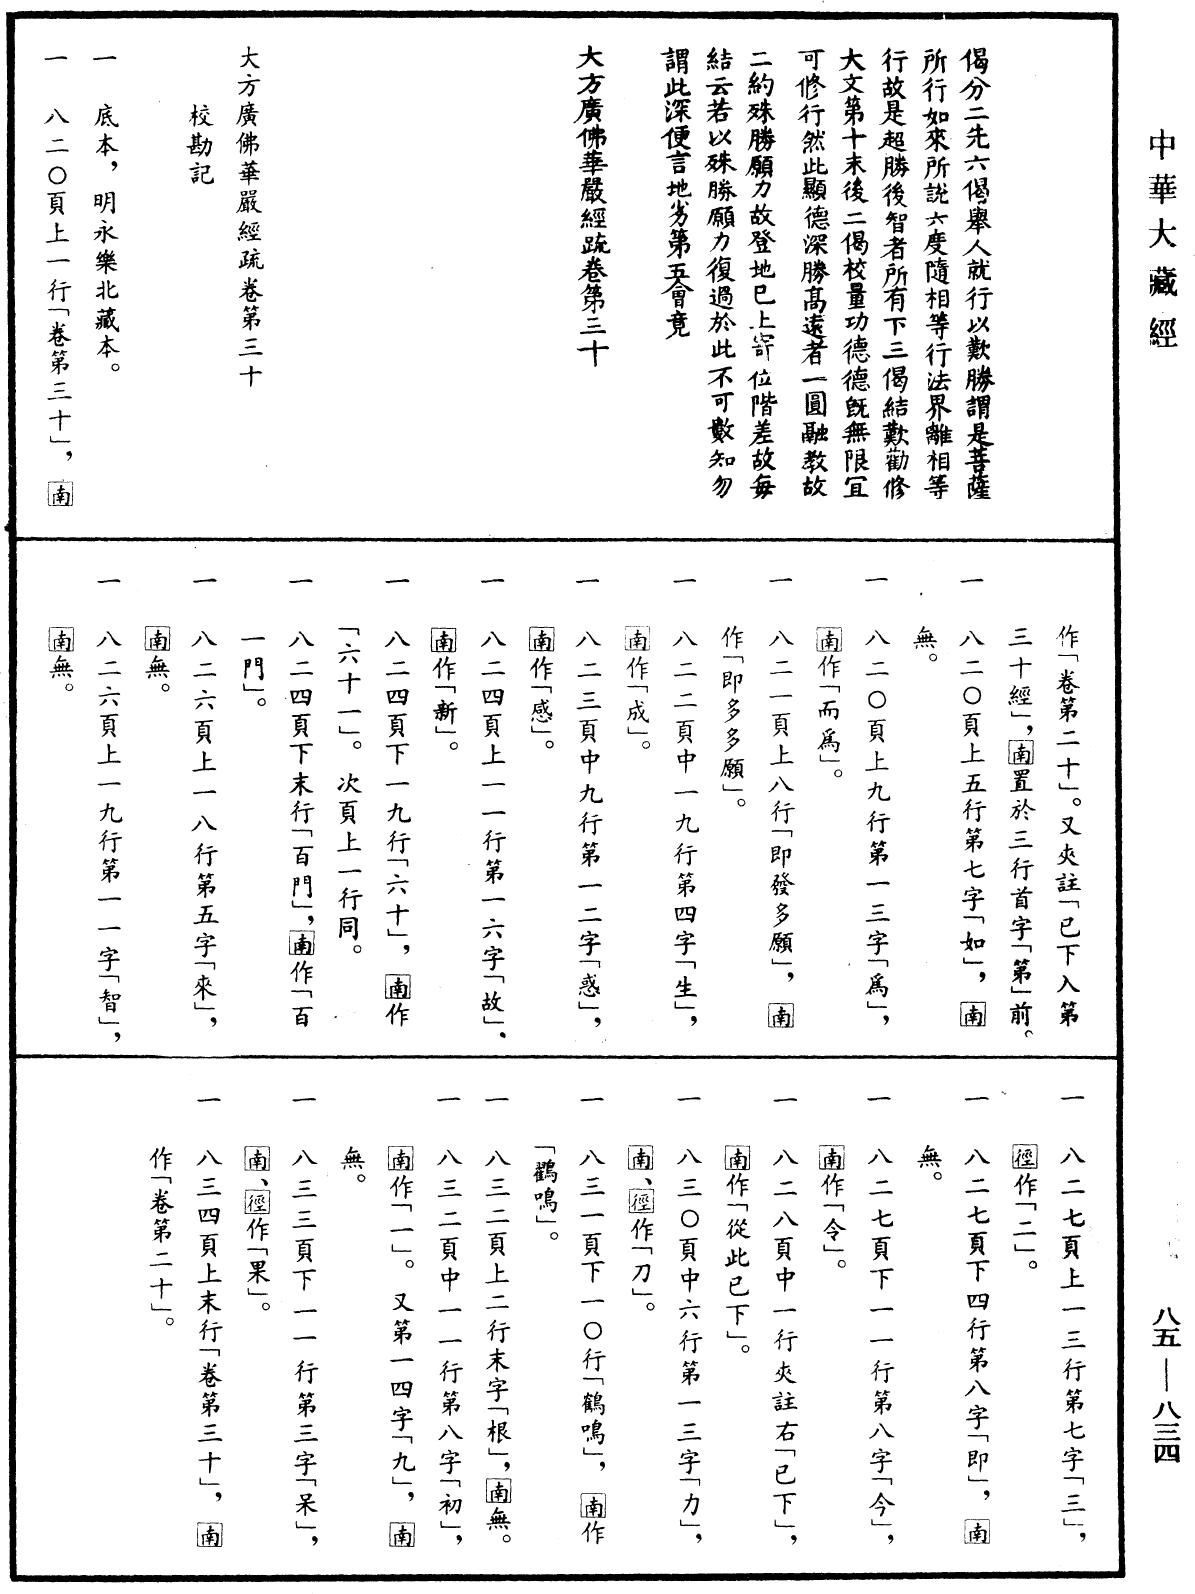 中華大藏經
偈分二先六偈舉人就行以歎勝謂是菩薩
所行如來所說六度隨相等行法界離相等
行故是超勝後智者所有下三偈結歎勸修
大文第十末後二偈校量功德德既無限宜
可修行然此顯德深勝高遠者一圓融教故
二約殊勝願力故登地已上寄位階差故每
結云若以殊勝願力復過於此不可數知勿
謂此深便言地劣第五會竟
大方廣佛華嚴經疏卷第三十
大方廣佛華嚴經疏卷第三十
校勘記
一 底本，明永樂北藏本。
一 八二〇頁上一行「卷第三十」，南
作「卷第二十」。又夾註「已下入第
三十經」，南置於三行首字「第」前。
一 八二〇頁上五行第七字「如」，南
無。
一 八二〇頁上九行第一三字「爲」，
南作「而爲」。
一 八二一頁上八行「即發多願」，南
作「即多多願」。
一 八二二頁中一九行第四字「生」，
南作「成」。
一 八二三頁中九行第一二字「惑」，
南作「感」。
一 八二四頁上一一行第一六字「故」，
南作「新」。
一 八二四頁下一九行「六十」，南作
「六十一」。次頁上一行同。
一 八二四頁下末行「百門」，南作「百
一門」。
一 八二六頁上一八行第五字「來」，
南無。
一 八二六頁上一九行第一一字「智」，
南無。
一 八二七頁上一三行第七字「三」，
徑作「二」。
一 八二七頁下四行第八字「即」，南
無。
一 八二七頁下一一行第八字「今」，
南作「令」。
一 八二八頁中一行夾註右「已下」，
南作「從此已下」。
一 八三〇頁中六行第一三字「力」，
南、徑作「刀」。
一 八三一頁下一〇行「鶴鳴」，南作
「鸛鳴」。
一 八三二頁上二行末字「根」，南無。
一 八三二頁中一一行第八字「初」，
南作「一」。又第一四字「九」，南
無。
一 八三三頁下一一行第三字「呆」，
南、徑作「果」。
一 八三四頁上末行「卷第三十」，南
作「卷第二十」。
八五—八三四